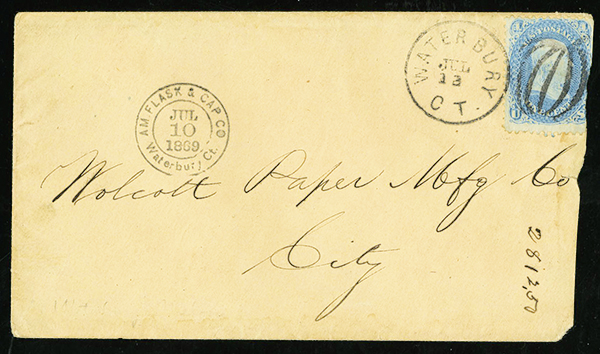 WATERBURY
JUL
13
CT.
AM. FLASK & CAP CO
JUL
10
1869
Waterbury Ct.
Wolcott Paper Mfg Co
City
2812,50
U.S. POSTAGE